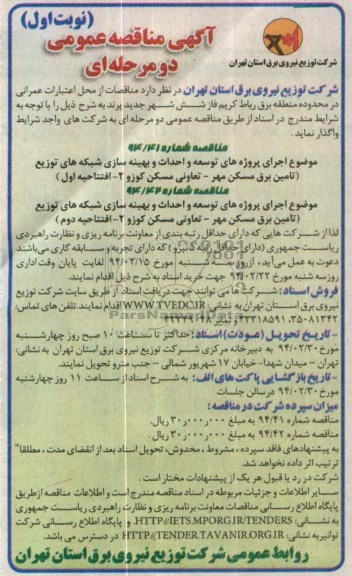 (نوبت اول)
آگهی مناقصه عمومی
دو مرحله ای
شرکت توزیع نیروی برق استان تهران
شرکت توزیع نیروی برق استان تهران در نظر دارد مناقصات از محل اعتبارات عمرانی
در محدوده منطقه برق رباط کریم فاز شش شهر جدید پرند به شرح ذیل را با توجه به
شرایط مندرج در اسناد از طریق مناقصه عمومی دو مرحله ای به شرکت های واجد شرایط
واگذار نماید.
مناقصه شماره ۹۴/۴۱
موضوع اجرای پروژه های توسعه و احداث و بهینه سازی شبکه های توزیع
(تامین برق مسکن مهر - تعاونی مسکن کوزو ۲- افتتاحیه اول)
مناقصه شماره ۹۴/۴۲
موضوع اجرای پروژه های توسعه و احداث و بهینه سازی شبکه های توزیع
(تامین برق مسکن مهر - تعاونی مسکن کوزو ۲- افتتاحیه دوم)
لذا از شرکت هایی که دارای حداقل رتبه بندی از معاونت برنامه ریزی و نظارت راهبردی
ریاست جمهوری (دارای حداقل پایه نیرو) که دارای تجربه و سابقه کاری می باشند
دعوت به عمل می آید، از روز سه شنبه مورخ ۹۴/۰۲/۱۵ لغایت پایان وقت اداری
روز سه شنبه مورخ ۹۴/۰۲/۲۲ جهت خرید اسناد به شرح ذیل اقدام نمایند.
فروش اسناد: شرکت ها می توانند جهت دریافت اسناد از طریق سایت شرکت توزیع
نیروی برق استان تهران به نشانی: WWW.TVEDC.IR اقدام نمایند. تلفن های تماس:
۳۵۰۸۱۳۴۲
- تاریخ تحویل (عودت) اسناد: حداکثر تا ساعت ۱۰ صبح روز چهارشنبه
مورخ ۹۴/۰۲/۳۰ به دبیرخانه مرکزی شرکت توزیع نیروی برق استان تهران به نشانی:
تهران - میدان شهدا- خیابان ۱۷ شهریور شمالی - جنب مترو تحویل نمایند.
- تاریخ بازگشایی پاکت های الف: به شرح اسناد از ساعت ۱۱ روز چهارشنبه
مورخ ۹۴/۰۲/۳۰ در سالن جلسات
میزان سپرده شرکت در مناقصه:
مناقصه شماره ۹۴/۴۱ به مبلغ ۳۰٫۰۰۰٫۰۰۰ ریال.
مناقصه شماره ۹۴/۴۲ به مبلغ ۳۰٫۰۰۰٫۰۰۰ ریال.
به پیشنهادهای فاقد سپرده، مشروط، مخدوش، تحویل اسناد بعد از انقضای مدت، مطلقا"
ترتیب اثر داده نخواهد شد.
شرکت در رد یا قبول هر یک از پیشنهادات مختار است.
سایر اطلاعات و جزئیات مربوطه در اسناد مناقصه مندرج است و اطلاعات مناقصه از طریق
پایگاه اطلاع رسانی مناقصات معاونت برنامه ریزی و نظارت راهبردی ریاست جمهوری
به نشانی: HTTP://IETS.MPORG.IR/TENDERS و پایگاه اطلاع رسانی شرکت
توانیر به نشانی: HTTP://TENDER.TAVANIR.ORG.IR در دسترس می باشد.
روابط عمومی شرکت توزیع نیروی برق استان تهران